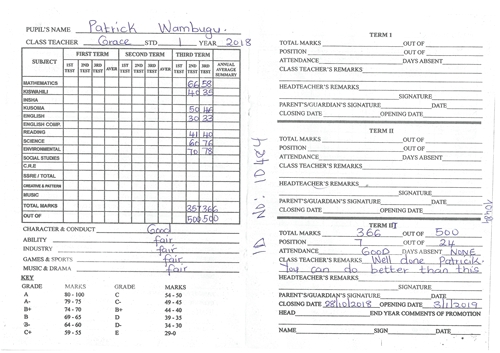 PUPIL'S NAME Patrick Wambugu.
CLASS TEACHER Grace STD. 1 YEAR 2018
SUBJECT FIRST TERM SECOND TERM THIRD TERM ANNUAL AVERAGE SUMMARY
1ST TEST 2ND TEST 3RD TEST AVER 1ST TEST 2ND TEST 3RD TEST AVER 1ST TEST 2ND TEST 3RD TEST
MATHEMATICS 66 58
KISWAHILI 40 35
INSHA
KUSOMA 50 46
ENGLISH 30 33
ENGLISH COMP.
READING 41 40
SCIENCE 60 76
ENVIRONMENTAL 70 78
SOCIAL STUDIES
C.R.E
SSRE / TOTAL
CREATIVE & PATTERN
MUSIC
TOTAL MARKS 357 366
OUT OF 500 500
CHARACTER & CONDUCT Good
ABILITY fair
INDUSTRY fair
GAMES & SPORTS fair
MUSIC & DRAMA fair
KEY
GRADE MARKS GRADE MARKS
A 80 - 100 C 54 - 50
A- 79 - 75 C- 49 - 45
B+ 74 - 70 B+ 44 - 40
B 69 - 65 D 39 - 35
B- 64 - 60 D- 34 - 30
C+ 59 - 55 E 29-0
ID NO: 10484
TERM 1
TOTAL MARKS OUT OF
POSITION OUT OF
ATTENDANCE DAYS ABSENT
CLASS TEACHER'S REMARKS
HEADTEACHER'S REMARKS
SIGNATURE
PARENT'S/GUARDIAN'S SIGNATURE DATE
CLOSING DATE OPENING DATE
TERM II
TOTAL MARKS OUT OF
POSITION OUT OF
ATTENDANCE DAYS ABSENT
CLASS TEACHER'S REMARKS
HEADTEACHER'S REMARKS
SIGNATURE
PARENT'S/GUARDIAN'S SIGNATURE DATE
CLOSING DATE OPENING DATE
10484
TERM III
TOTAL MARKS 366 OUT OF 500
POSITION 7 OUT OF 24
ATTENDANCE GOOD DAYS ABSENT NONE
CLASS TEACHER'S REMARKS Well done Patricik.
You can do better than this
HEADTEACHER'S REMARKS
SIGNATURE
PARENT'S/GUARDIAN'S SIGNATURE DATE
CLOSING DATE 28/10/2018 OPENING DATE 3/1/2019
HEAD END YEAR COMMENTS OF PROMOTION
NAME SIGN DATE